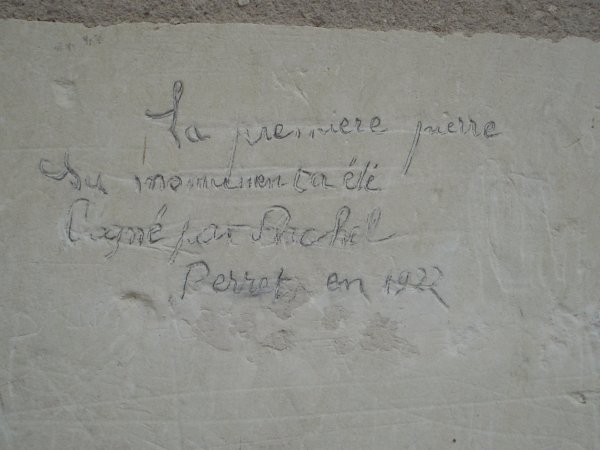 La premiere pierre
Du monument a été
par
Perret, en 1922